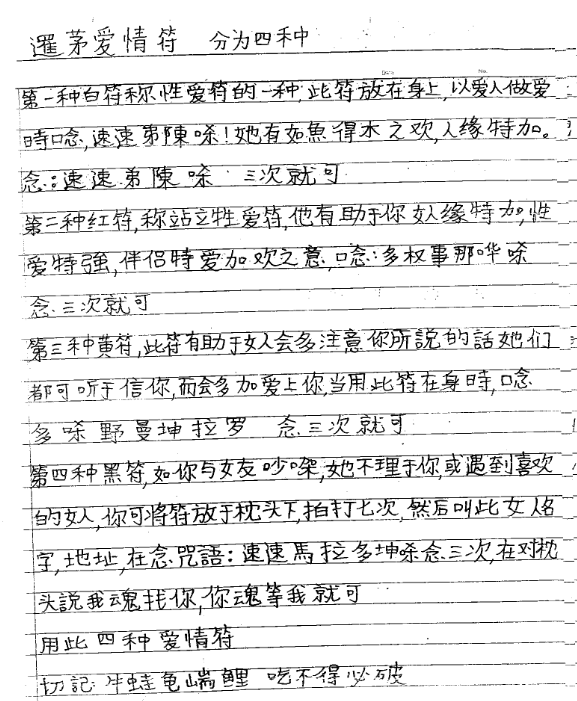 暹茅爱情符 分为四种
第一种白符称性爱符的一种,此符放在身上,以爱人做爱
時唸,速速弟陳唏!她有如魚得水之欢,人缘特加。
念:速速弟陳唏 三次就可
第二种红符,称站立性爱符,他有助于你女人缘特加,性
爱特強,伴侣特爱加欢之意,口念:多权事那哗唏
念三次就可
第三种黄符,此符有助于女人会多注意你所説的話她们
都可听于信你,而会多加爱上你,当用此符在身時,唸
多唏野曼坤拉罗 念三次就可
第四种黑符,如你与女友吵架,她不理于你,或遇到喜欢
的女人,你可将符放于枕头下,拍打七次,然后叫此女人名
字,地址,在念咒語:速速馬拉多坤唏念三次,在对枕
头説我魂找你,你魂等我就可
用此四种爱情符
切記:牛蛙龟 鲤 吃不得必破